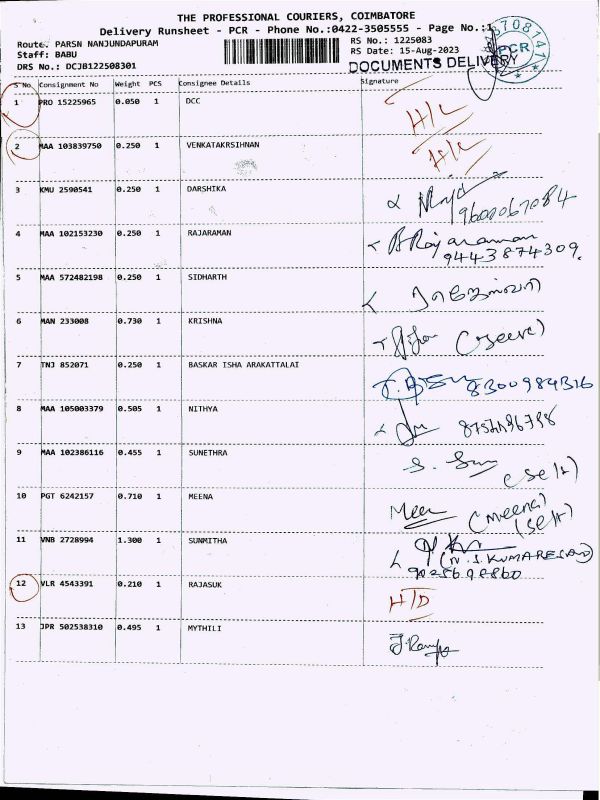 THE PROFESSIONAL COURIERS, COIMBATORE
Delivery Runsheet - PCR - Phone No.:0422-3505555 - Page No.:1
Route. PARSN NANJUNDAPURAM
Staff: BABU
DRS No.: DCJB122508301
RS No.: 1225083
RS Date: 15-Aug-2023
DOCUMENTS DELIVERY
PCR
S No. Consignment No Weight PCS Consignee Details Signature
1 PRO 15225965 0.050 1 DCC H/L
2 MAA 103839750 0.250 1 VENKATAKRSIHNAN H/L
3 KMU 2590541 0.250 1 DARSHIKA
9600067084
4 MAA 102153230 0.250 1 RAJARAMAN BRajaraman
9443874309.
5 MAA 572482198 0.250 1 SIDHARTH
6 MAN 233008 0.730 1 KRISHNA
7 TNJ 852071 0.250 1 BASKAR ISHA ARAKATTALAI 8300984316
8 MAA 105003379 0.505 1 NITHYA
9 MAA 102386116 0.455 1 SUNETHRA (Self)
10 PGT 6242157 0.710 1 MEENA Meer (Meena)
(Self)
11 VNB 2728994 1.300 1 SUNMITHA (N.S.KUMARESAN)
12 VLR 4543391 0.210 1 RAJASUK H/D
13 JPR 502538310 0.495 1 MYTHILI